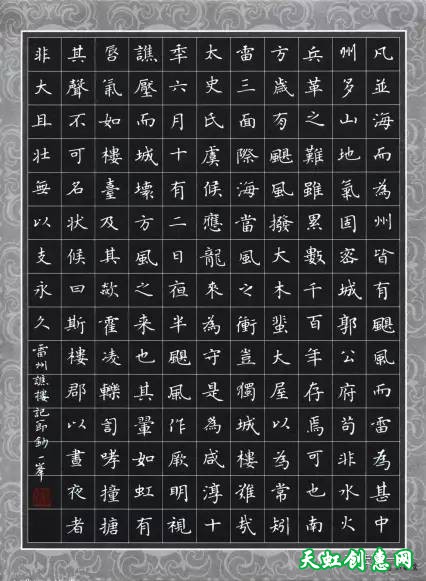 凡並海而為州皆有颶風而雷為甚中
州多山地氣固密城郭公府苟非水火
兵革之難雖累數千百年存焉可也南
方歲有颶風撥大木蜚大屋以為常矧
雷三面際海當風之衝豈獨城樓難哉
太史氏虞候應龍來為守是為咸淳十
季六月十有二日夜半颶風作厥明視
譙壓而城壞方風之來也其暈如虹有
唇氣如樓臺及其欻霍凌轢訇哮撞搪
其聲不可名狀候曰斯樓郡以晝夜者
非大且壯無以支永久
雷州譙樓記節鈔一峯
天虹创意网